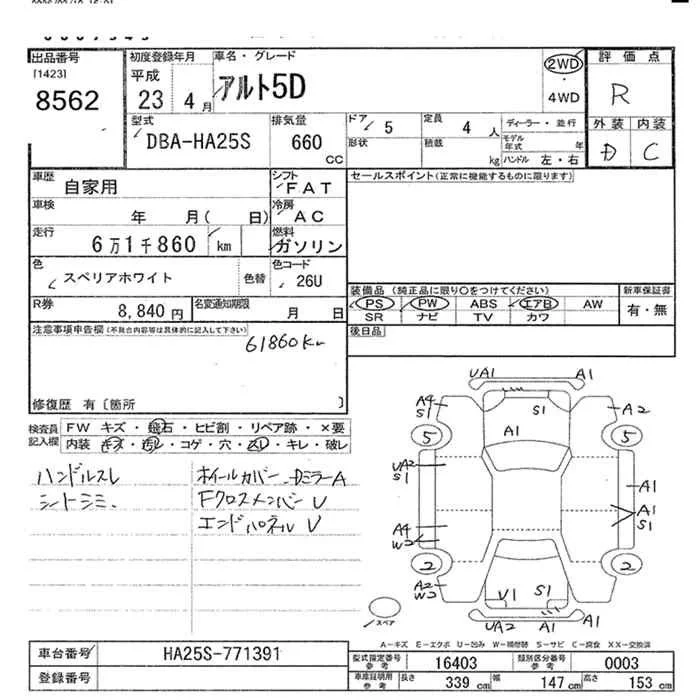 出品番号 初度登録年月 車名・グレード 評価点
[1423] 平成 アルト5D 2WD R
8562 23 4月 4WD
外装 内装
型式 排気量 ドア 定員 ディーラー・並行 D C
DBA-HA25S 660 5 4 人 モデル年式 年
CC 形状 積載 kg ハンドル 左・右
車歴 自家用 シフト FAT セールスポイント(正常に機能するものに限ります)
車検 年 月( 日) 冷房 AC
走行 6万1千860 km 燃料 ガソリン
色 スペリアホワイト 色替 色コード 26U
装備品 (純正品に限り○をつけてください) 新車保証書
R券 8,840円 名変通知期限 月 日 PS PW ABS エアB AW 有・無
SR ナビ TV カワ
注意事項申告欄(不具合内容等は具体的に記入して下さい) 後日品
61860Km
修復歴 有〔箇所 〕
検査員記入欄 FW キズ・飛石・ヒビ割・リペア跡・×要
内装 キズ・汚レ・コゲ・穴・スレ・キレ・破レ
ハンドルスレ ホイールカバー、DミラーA
シートシミ. Fクロスメンバー U
エンドパネル U
UA1 A1
A4 S1 S1 A2
5 A1 5
UA2 S1 A1
A1 S1
A4 W2
2 2
A2 W2 V1 S1
スペア UA2 A1 A1
A-キズ E-エクボ U-凹み W-補修跡 S-サビ C-腐食 XX-交換済
車台番号 HA25S-771391 型式指定番号 参考 16403 類別区分番号 参考 0003
登録番号 車庫証明用 参考 長さ 339 cm 幅 147 cm 高さ 153 cm